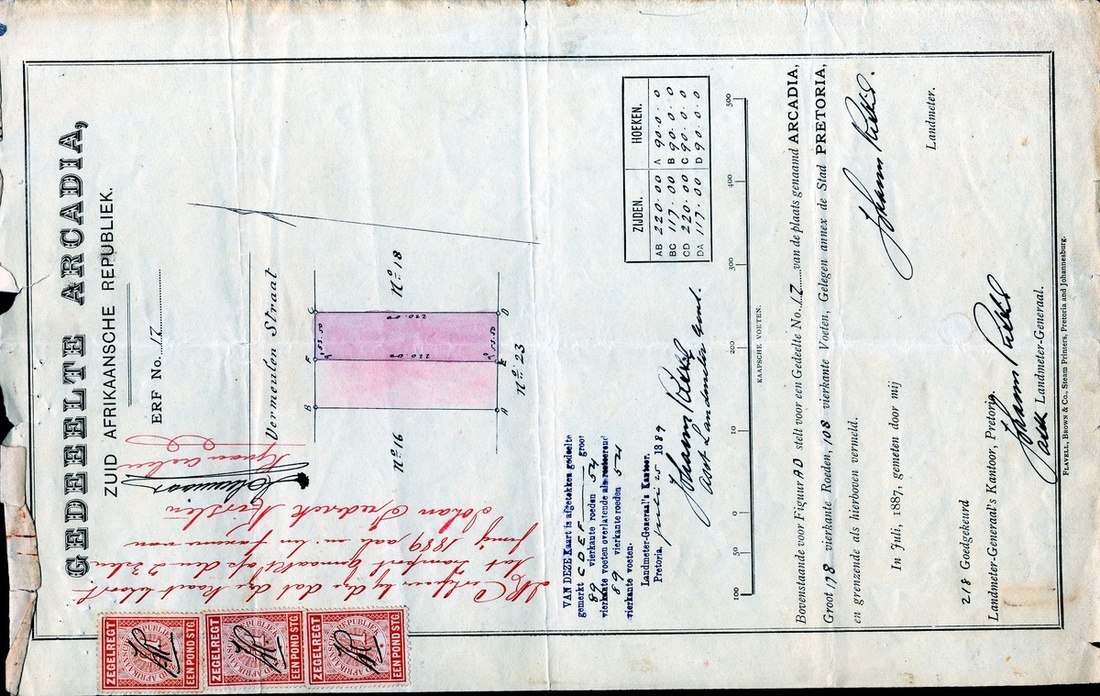 GEDEELTE ARCADIA,
ZUID AFRIKAANSCHE REPUBLIEK.
ERF No. 17
Vermeulen Straat
B
F
C
53.50
220.00
220.00
53.50
A
E
D
No. 16
No. 18
No. 23
1889
Johan Fredrik Kirsten
ZEGELREGT
EEN POND STG.
ZEGELREGT
EEN POND STG.
ZEGELREGT
EEN POND STG.
VAN DEZE Kaart is afgetrokken gedeelte
gemerkt CDEF groot
89 vierkante roeden 54
vierkante voeten overlatende als resteerend
89 vierkante roeden 54
vierkante voeten.
Landmeter-Generaal's Kantoor.
Pretoria, 1889
Johann Rissik
ZIJDEN. HOEKEN.
AB 220.00 A 90.0.0
BC 117.00 B 90.0.0
CD 220.00 C 90.0.0
DA 117.00 D 90.0.0
100 50 0 10 200 300 400 500
KAAPSCHE VOETEN.
Bovenstaande voor Figuur AD stelt voor een Gedeelte No. 17 van de plaats genaamd ARCADIA,
Groot 178 vierkante Roeden, 108 vierkante Voeten, Gelegen annex de Stad PRETORIA,
en grenzende als hierboven vermeld.
In Juli, 1887, gemeten door mij
Johann Rissik.
Landmeter.
218 Goedgekeurd
Landmeter-Generaal's Kantoor, Pretoria.
Johann Rissik
Landmeter-Generaal.
FLAVELL, BROWN & Co., Steam Printers, Pretoria and Johannesburg.